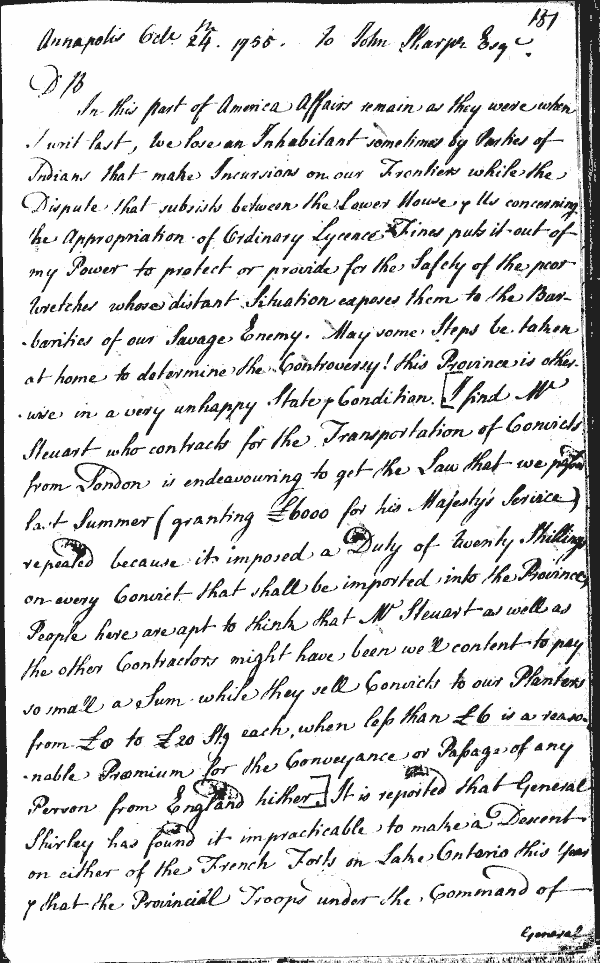 187
Annapolis Octr. 12/24. 1755. To John Sharpe Esqr.
D B
In this part of America Affairs remain as they were when
I writ last, We lose an Inhabitant sometimes by Parties of
Indians that make Incursions on our Frontiers while the
Dispute that subsists between the Lower House & Us concerning
the Appropriation of Ordinary Lycence Fines puts it out of
my Power to protect or provide for the Safety of the poor
Wretches whose distant Situation exposes them to the Bar-
-barities of our Savage Enemy. May some Steps be taken
at home to determine the Controversy! this Province is other-
-wise in a very unhappy State & Condition. [I find Mr
Steuart who contracts for the Transportation of Convicts
from London is endeavouring to get the Law that we pass'd
last Summer (granting £6000 for his Majesty's Service)
repealed because it imposed a Duty of Twenty Shillings
on every Convict that shall be imported into the Province,
People here are apt to think that Mr Steuart as well as
the other Contractors might have been well content to pay
so small a Sum while they sell Convicts to our Planters
from £8 to £20 Stg each, when less than £6 is a reaso-
-nable Præmium for the Conveyance or Passage of any
Person from England hither.] It is reported that General
Shirley has found it impracticable to make a Descent
on either of the French Forts on Lake Ontario this Year
& that the Provinciall Troops under the Command of
General